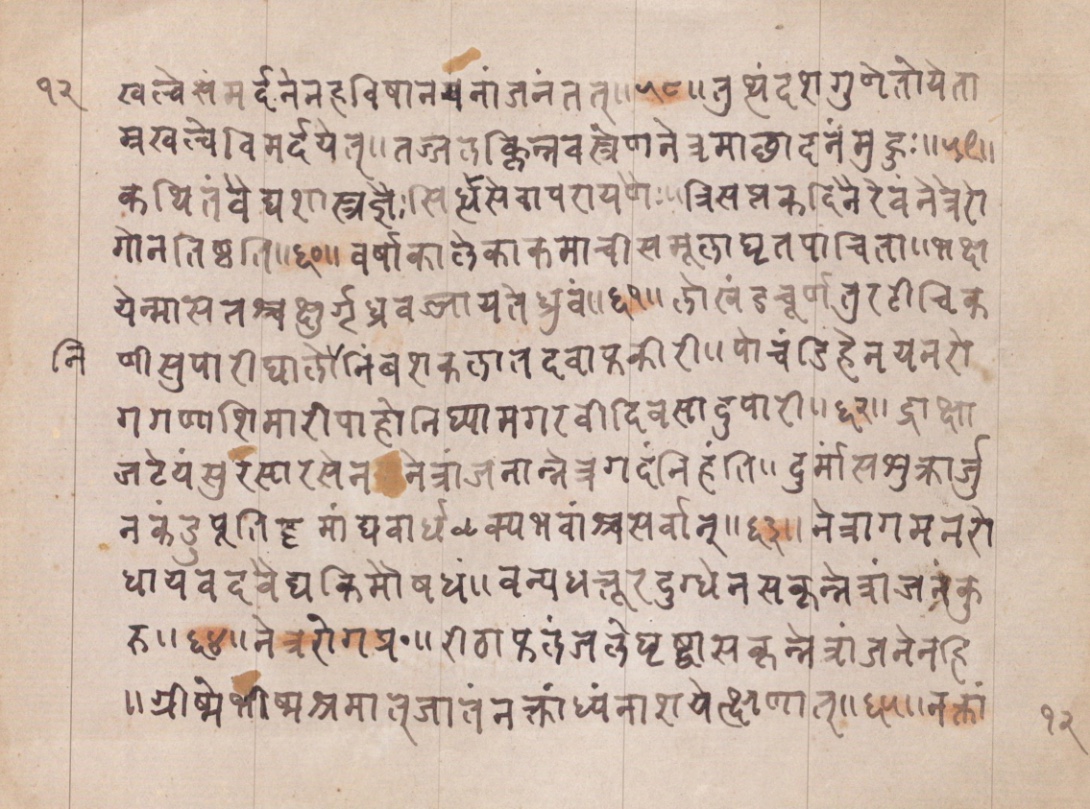 १२ खल्वे संमर्दनेनहविषानयनांजनंतत्॥५८॥तुथ्थंदशगुणेतोयेता
म्रखल्वेविमर्दयेत्॥तज्जलक्लिन्नवस्त्रेणनेत्रमाछादनंमुहुः॥५९॥
कथितंवैद्यशास्त्रज्ञैःसिर्थसेवापरायणैः॥त्रिसप्तकदिनैरेवंनेत्रेरो
गोनतिष्ठति॥६०॥वर्षाकालेकाकमाचीसमूलाघृतपाचिता॥भक्ष
येन्मासतश्चक्षुर्गृध्रवज्जायतेध्रुवं॥६१॥लोखंडचूर्णतुरटीचिक
नि णीसुपारीघालौनिंबशकलातदवाफकीरी॥पोचंडिहेनयनरो
गगणाशिमारीपाहोनिघ्यामगरवीदिवसादुपारी॥६२॥द्राक्षा
जटेयंसुरसारसेननेत्रांजनान्नेत्रगदंनिहंति॥दुर्मांसशुक्रार्जु
नकंडुपूतिदृमांद्यवार्धक्यभवांश्चसर्वान्॥६३॥नेत्रागमनरो
धायवदवैद्यकिमौषधं॥वन्यधत्तूरदुग्धेनसकृन्नेत्रांजनंकु
रु॥६४॥नेत्ररोगप्र॰॥रीठाफलंजलेघृष्ट्वासकृन्नेत्रांजनेनहि
॥ग्रीष्मेभीष्मश्रमात्जातंनक्तांध्यंनाशयेत्क्षणात्॥६५॥नक्तां १२